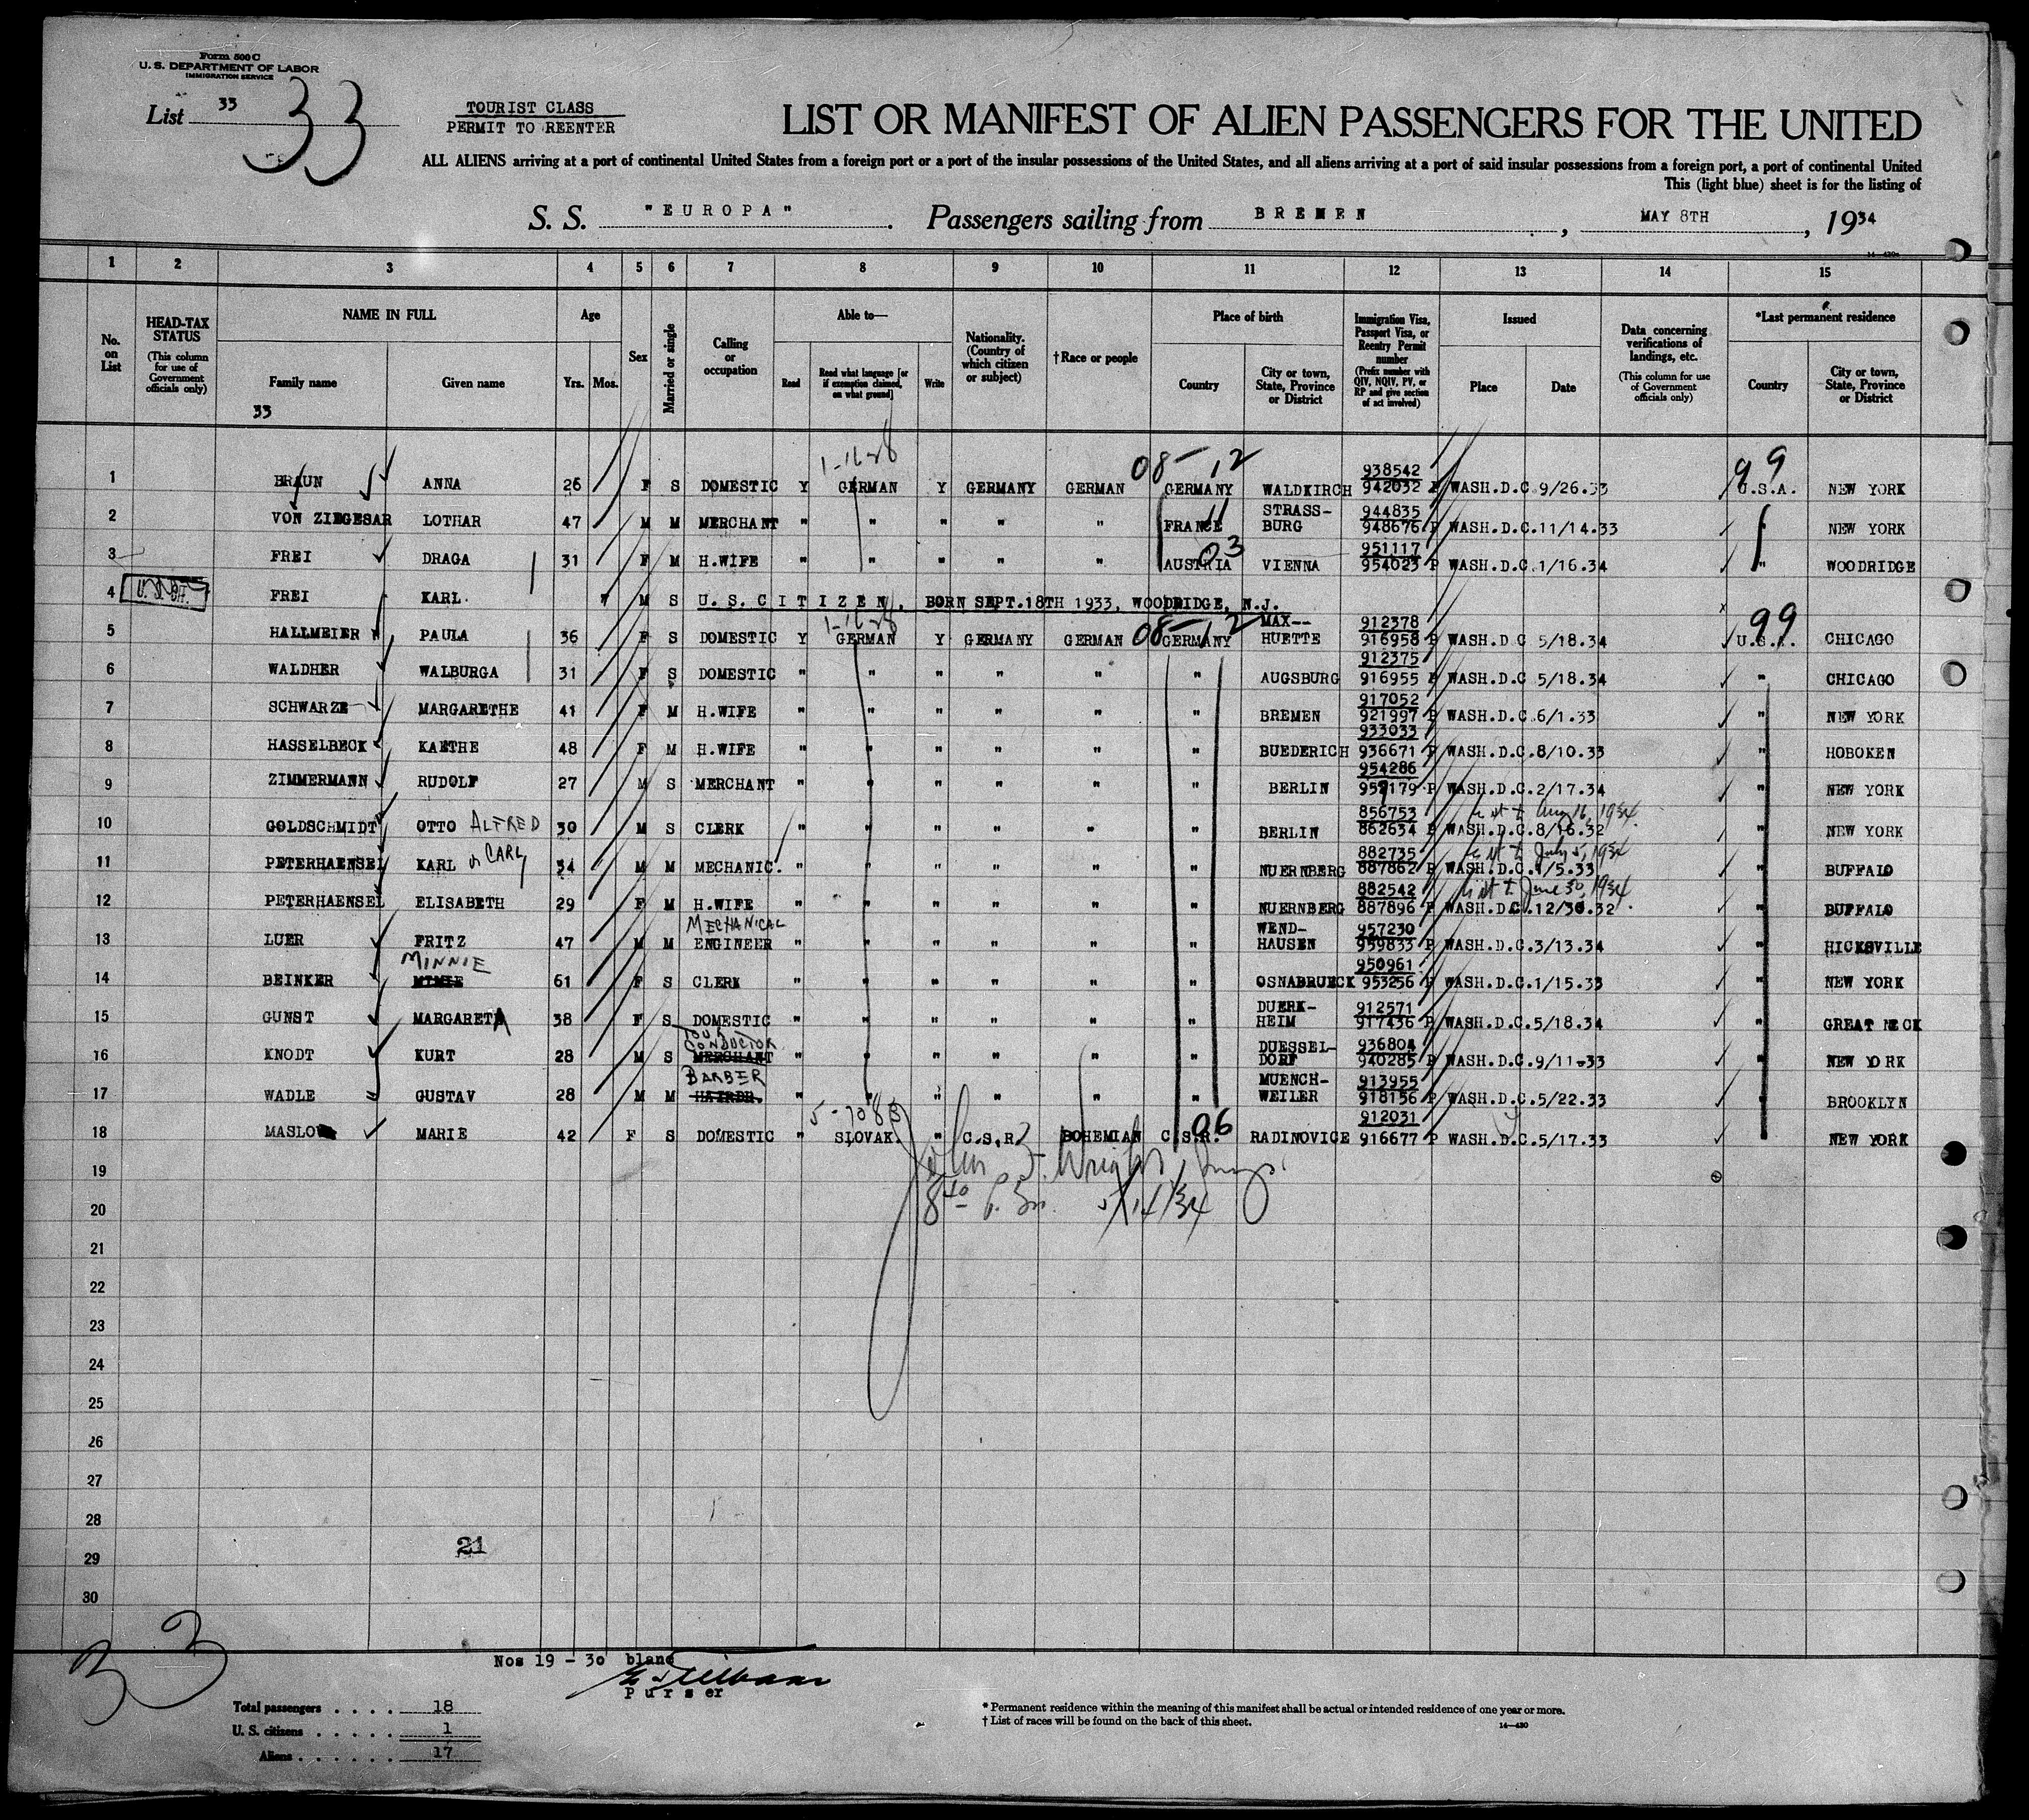 Form 500 C
U. S. DEPARTMENT OF LABOR
IMMIGRATION SERVICE
List 33
33
TOURIST CLASS
PERMIT TO REENTER
LIST OR MANIFEST OF ALIEN PASSENGERS FOR THE UNITED
ALL ALIENS arriving at a port of continental United States from a foreign port or a port of the insular possessions of the United States, and all aliens arriving at a port of said insular possessions from a foreign port, a port of continental United
This (light blue) sheet is for the listing of
S. S. "EUROPA". Passengers sailing from BREMEN, MAY 8TH, 1934
1 2 3 4 5 6 7 8 9 10 11 12 13 14 15
No. on List
HEAD-TAX STATUS
(This column for use of Government officials only)
NAME IN FULL
Family name
Given name
33
Age
Yrs. Mos.
Sex
Married or single
Calling or occupation
Able to—
Read
Read what language [or if exemption claimed, on what ground]
Write
Nationality. (Country of which citizen or subject)
†Race or people
Place of birth
Country
City or town, State, Province or District
Immigration Visa, Passport Visa, or Reentry Permit number
(Prefix number with QIV, NQIV, PV, or RP and give section of act involved)
Issued
Place
Date
Data concerning verifications of landings, etc.
(This column for use of Government officials only)
*Last permanent residence
Country
City or town, State, Province or District
1-16-28 08-12 99
1 BRAUN ANNA 26 F S DOMESTIC Y GERMAN Y GERMANY GERMAN GERMANY WALDKIRCH 938542 942032 P WASH.D.C. 9/26.33 U.S.A. NEW YORK
2 VON ZIEGESAR LOTHAR 47 M M MERCHANT " " " " " FRANCE 11 STRASS-BURG 944835 948676 P WASH.D.C. 11/14.33 NEW YORK
3 FREI DRAGA 31 F M H.WIFE " " " " " AUSTRIA 03 VIENNA 951117 954023 P WASH.D.C. 1/16.34 " WOODRIDGE
4 FREI KARL M S U.S. CITIZEN, BORN SEPT.18TH 1933, WOODRIDGE, N.J.
1-16-28 08-12 99
5 HALLMEIER PAULA 36 F S DOMESTIC Y GERMAN Y GERMANY GERMAN GERMANY MAX--HUETTE 912378 916958 P WASH.D.C 5/18.34 U.S.A. CHICAGO
6 WALDHER WALBURGA 31 F S DOMESTIC " " " " " " AUGSBURG 912375 916955 P WASH.D.C 5/18.34 " CHICAGO
7 SCHWARZE MARGARETHE 41 F M H.WIFE " " " " " " BREMEN 917052 921997 P WASH.D.C. 6/1.33 " NEW YORK
8 HASSELBECK KAETHE 48 F M H.WIFE " " " " " " BUEDERICH 933033 936671 P WASH.D.C. 8/10.33 " HOBOKEN
9 ZIMMERMANN RUDOLF 27 M S MERCHANT " " " " " " BERLIN 954286 957179 P WASH.D.C. 2/17.34 " NEW YORK
10 GOLDSCHMIDT OTTO ALFRED 30 M S CLERK " " " " " " BERLIN 856753 862634 P WASH.D.C. 8/16.32 Aug 16, 1934 " NEW YORK
11 PETERHAENSEL KARL or CARL 34 M M MECHANIC. " " " " " " NUERNBERG 882735 887862 P WASH.D.C. 1/5.33 July 5, 1934 " BUFFALO
12 PETERHAENSEL ELISABETH 29 F M H.WIFE " " " " " " NUERNBERG 882542 887896 P WASH.D.C. 12/30.32 June 30, 1934 " BUFFALO
13 LUER FRITZ 47 M M MECHANICAL ENGINEER " " " " " " WEND-HAUSEN 957230 959833 P WASH.D.C. 3/13.34 " HICKSVILLE
14 BEINKER MINNIE 61 F S CLERK " " " " " " OSNABRUECK 950961 953256 P WASH.D.C. 1/15.33 " NEW YORK
15 GUNST MARGARETA 38 F S DOMESTIC " " " " " " DUERK-HEIM 912571 917436 P WASH.D.C. 5/18.34 " GREAT NECK
16 KNODT KURT 28 M S TOUR CONDUCTOR MERCHANT " " " " " " DUESSEL-DORF 936804 940285 P WASH.D.C. 9/11-33 " NEW YORK
17 WADLE GUSTAV 28 M M BARBER HAIRDR. " " " " " " MUENCH-WEILER 913955 918156 P WASH.D.C. 5/22.33 " BROOKLYN
18 MASLO MARIE 42 F S DOMESTIC " SLOVAK. " C.S.R. BOHEMIAN C.S.R. 06 RADINOVICE 912031 916677 P WASH.D.C. 5/17.33 " NEW YORK
19
John J. Wright, Insp.
20
5/14/34
21
22
23
24
25
26
27
28
21
29
30
33
Nos 19 - 30 blanc
Purser
Total passengers . . . . 18
U. S. citizens . . . . . 1
Aliens . . . . . . 17
* Permanent residence within the meaning of this manifest shall be actual or intended residence of one year or more.
† List of races will be found on the back of this sheet.
14—420